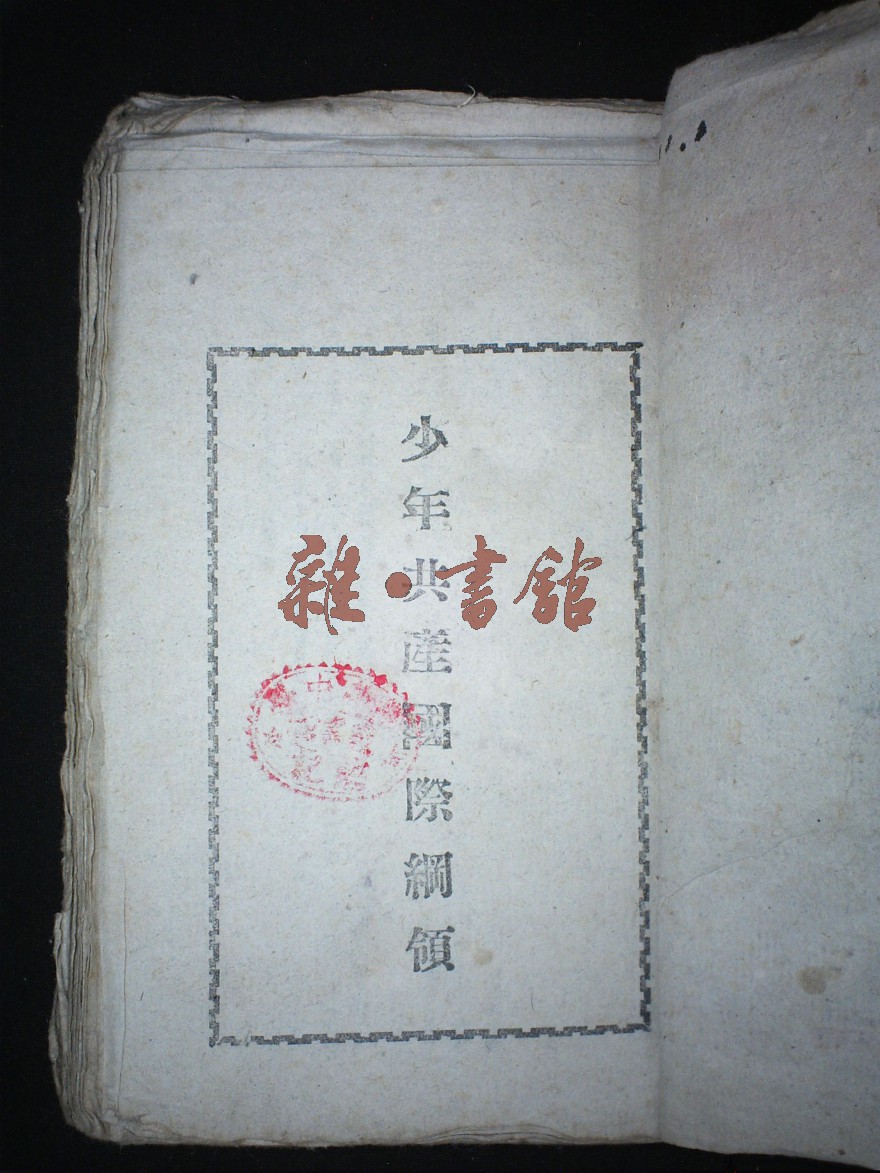 少年共產國際綱領
雜·書館